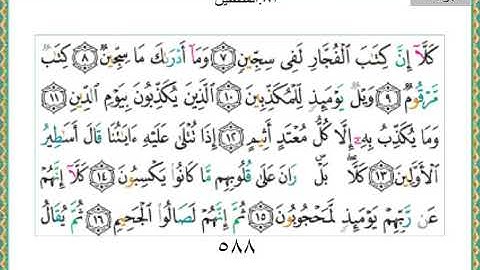 ٨٣.المطففين
كَلَّآ إِنَّ كِتَٰبَ ٱلْفُجَّارِ لَفِى سِجِّينٍ ٧ وَمَآ أَدْرَىٰكَ مَا سِجِّينٌ ٨ كِتَٰبٌ
مَّرْقُومٌ ٩ وَيْلٌ يَوْمَئِذٍ لِّلْمُكَذِّبِينَ ١٠ ٱلَّذِينَ يُكَذِّبُونَ بِيَوْمِ ٱلدِّينِ ١١
وَمَا يُكَذِّبُ بِهِۦٓ إِلَّا كُلُّ مُعْتَدٍ أَثِيمٍ ١٢ إِذَا تُتْلَىٰ عَلَيْهِ ءَايَٰتُنَا قَالَ أَسَٰطِيرُ
ٱلْأَوَّلِينَ ١٣ كَلَّا ۖ بَلْ ۜ رَانَ عَلَىٰ قُلُوبِهِم مَّا كَانُوا۟ يَكْسِبُونَ ١٤ كَلَّآ إِنَّهُمْ
عَن رَّبِّهِمْ يَوْمَئِذٍ لَّمَحْجُوبُونَ ١٥ ثُمَّ إِنَّهُمْ لَصَالُوا۟ ٱلْجَحِيمِ ١٦ ثُمَّ يُقَالُ
٥٨٨